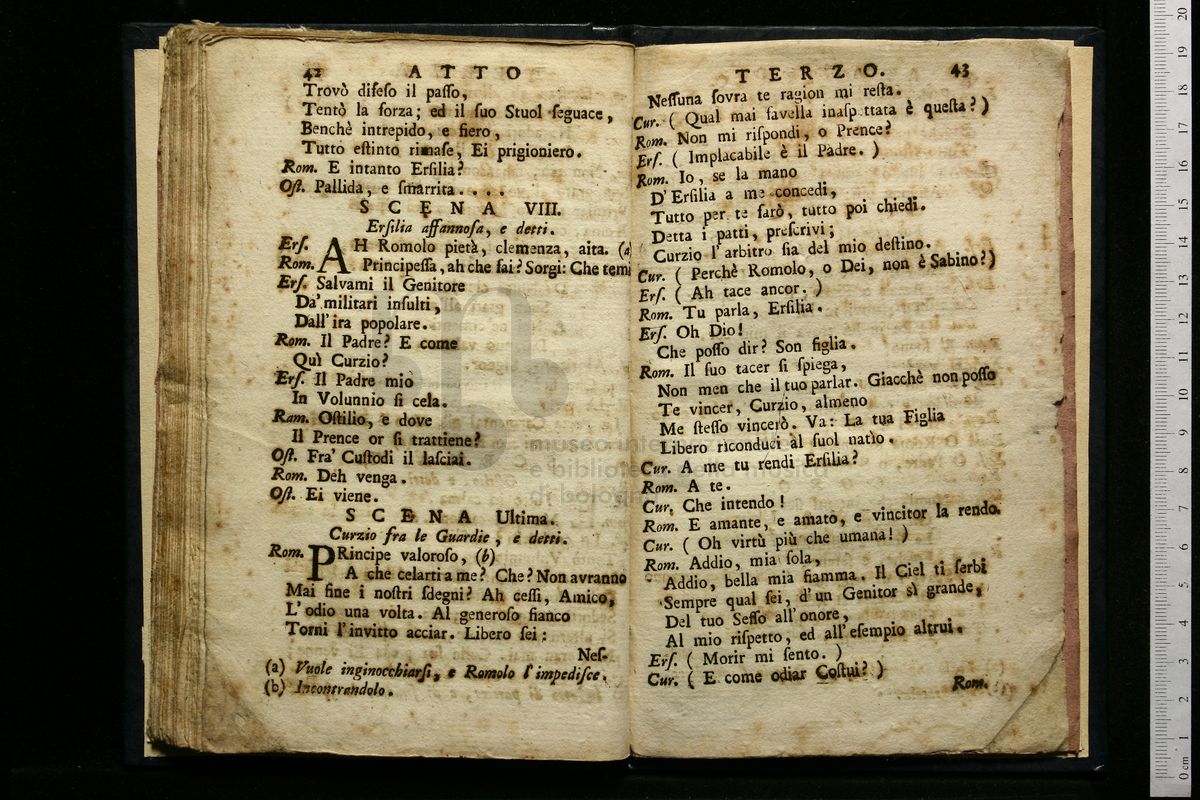 42 ATTO
Trovò difeſo il paſſo,
Tentò la forza; ed il ſuo Stuol ſeguace,
Benchè intrepido, e fiero,
Tutto eſtinto rimaſe, Ei prigioniero.
Rom. E intanto Erſilia?
Oſt. Pallida, e ſmarrita....
SCENA VIII.
Erſilia affannoſa, e detti.
Erſ. AH Romolo pietà, clemenza, aita. (a
Rom. Principeſſa, ah che fai? Sorgi: Che temi
Erſ. Salvami il Genitore
Da' militari inſulti,
Dall' ira popolare.
Rom. Il Padre? E come
Quì Curzio?
Erſ. Il Padre mio
In Volunnio ſi cela.
Rom. Oſtilio, e dove
Il Prence or ſi trattiene?
Oſt. Fra' Cuſtodi il laſciai.
Rom. Deh venga.
Oſt. Ei viene.
SCENA Ultima.
Curzio fra le Guardie, e detti.
Rom. PRincipe valoroſo, (b)
A che celarti a me? Che? Non avranno
Mai fine i noſtri ſdegni? Ah ceſſi, Amico,
L' odio una volta. Al generoſo fianco
Torni l'invitto acciar. Libero ſei:
Neſ-
(a) Vuole inginocchiarſi, e Romolo l'impediſce.
(b) Incontrandolo.
TERZO. 43
Neſſuna ſovra te ragion mi reſta.
Cur. ( Qual mai favella inaſp ttata è queſta? )
Rom. Non mi riſpondi, o Prence?
Erſ. ( Implacabile è il Padre. )
Rom. Io, ſe la mano
D' Erſilia a me concedi,
Tutto per te farò, tutto poi chiedi.
Detta i patti, preſcrivi;
Curzio l'arbitro ſia del mio deſtino.
Cur. ( Perchè Romolo, o Dei, non è Sabino? )
Erſ. ( Ah tace ancor. )
Rom. Tu parla, Erſilia.
Erſ. Oh Dio!
Che poſſo dir? Son figlia.
Rom. Il ſuo tacer ſi ſpiega,
Non men che il tuo parlar. Giacchè non poſſo
Te vincer, Curzio, almeno
Me ſteſſo vincerò. Va: La tua Figlia
Libero riconduci al ſuol natìo.
Cur. A me tu rendi Erſilia?
Rom. A te.
Cur. Che intendo!
Rom. E amante, e amato, e vincitor la rendo.
Cur. ( Oh virtù più che umana! )
Rom. Addio, mia ſola,
Addio, bella mia fiamma. Il Ciel ti ſerbi
Sempre qual ſei, d'un Genitor sì grande,
Del tuo Seſſo all' onore,
Al mio riſpetto, ed all' eſempio altrui.
Erſ. ( Morir mi ſento. )
Cur. ( E come odiar Coſtui? )
Rom.
museo
e biblioteca
di bologna
0 cm 1 2 3 4 5 6 7 8 9 10 11 12 13 14 15 16 17 18 19 20